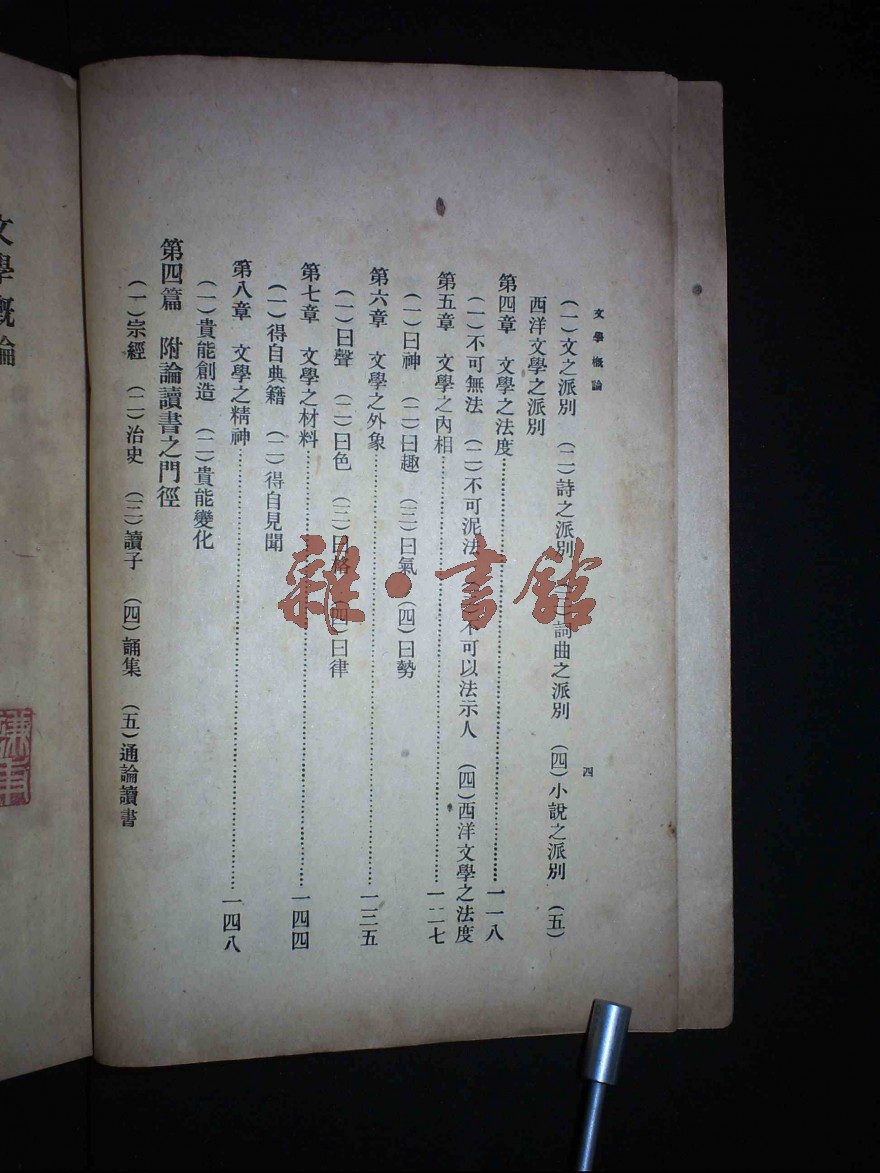 文學概論
四
（一）文之派別　（二）詩之派別　（三）詞曲之派別　（四）小說之派別　（五）
西洋文學之派別
第四章　文學之法度…………一一八
（一）不可無法　（二）不可泥法　（三）不可以法示人　（四）西洋文學之法度
第五章　文學之內相…………一二七
（一）曰神　（二）曰趣　（三）曰氣　（四）曰勢
第六章　文學之外象…………一三五
（一）曰聲　（二）曰色　（三）曰格　（四）曰律
第七章　文學之材料…………一四四
（一）得自典籍　（二）得自見聞
第八章　文學之精神…………一四八
（一）貴能創造　（二）貴能變化
第四篇　附論讀書之門徑
（一）宗經　（二）治史　（三）讀子　（四）誦集　（五）通論讀書
文學概論
雜·書館